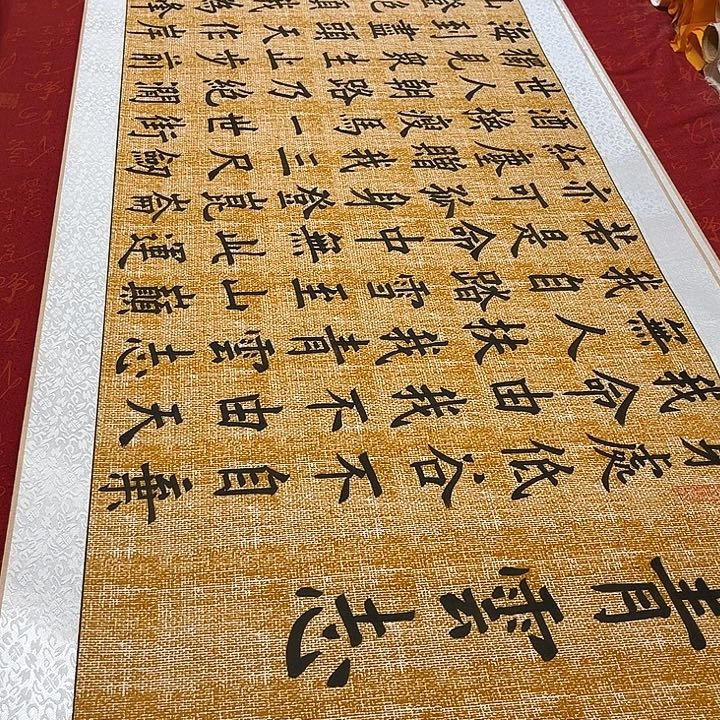 青雲志
身處低谷不自棄
我命由我不由天
無人扶我青雲志
我自踏雪至山巔
若是命中無此運
亦可孤身登崑崙
紅塵贈我三尺劍
酒換瘦馬一世街
世人朝路乃絕間
獨見泉生止步前
海到盡頭天作岸
山登絕頂我為峰